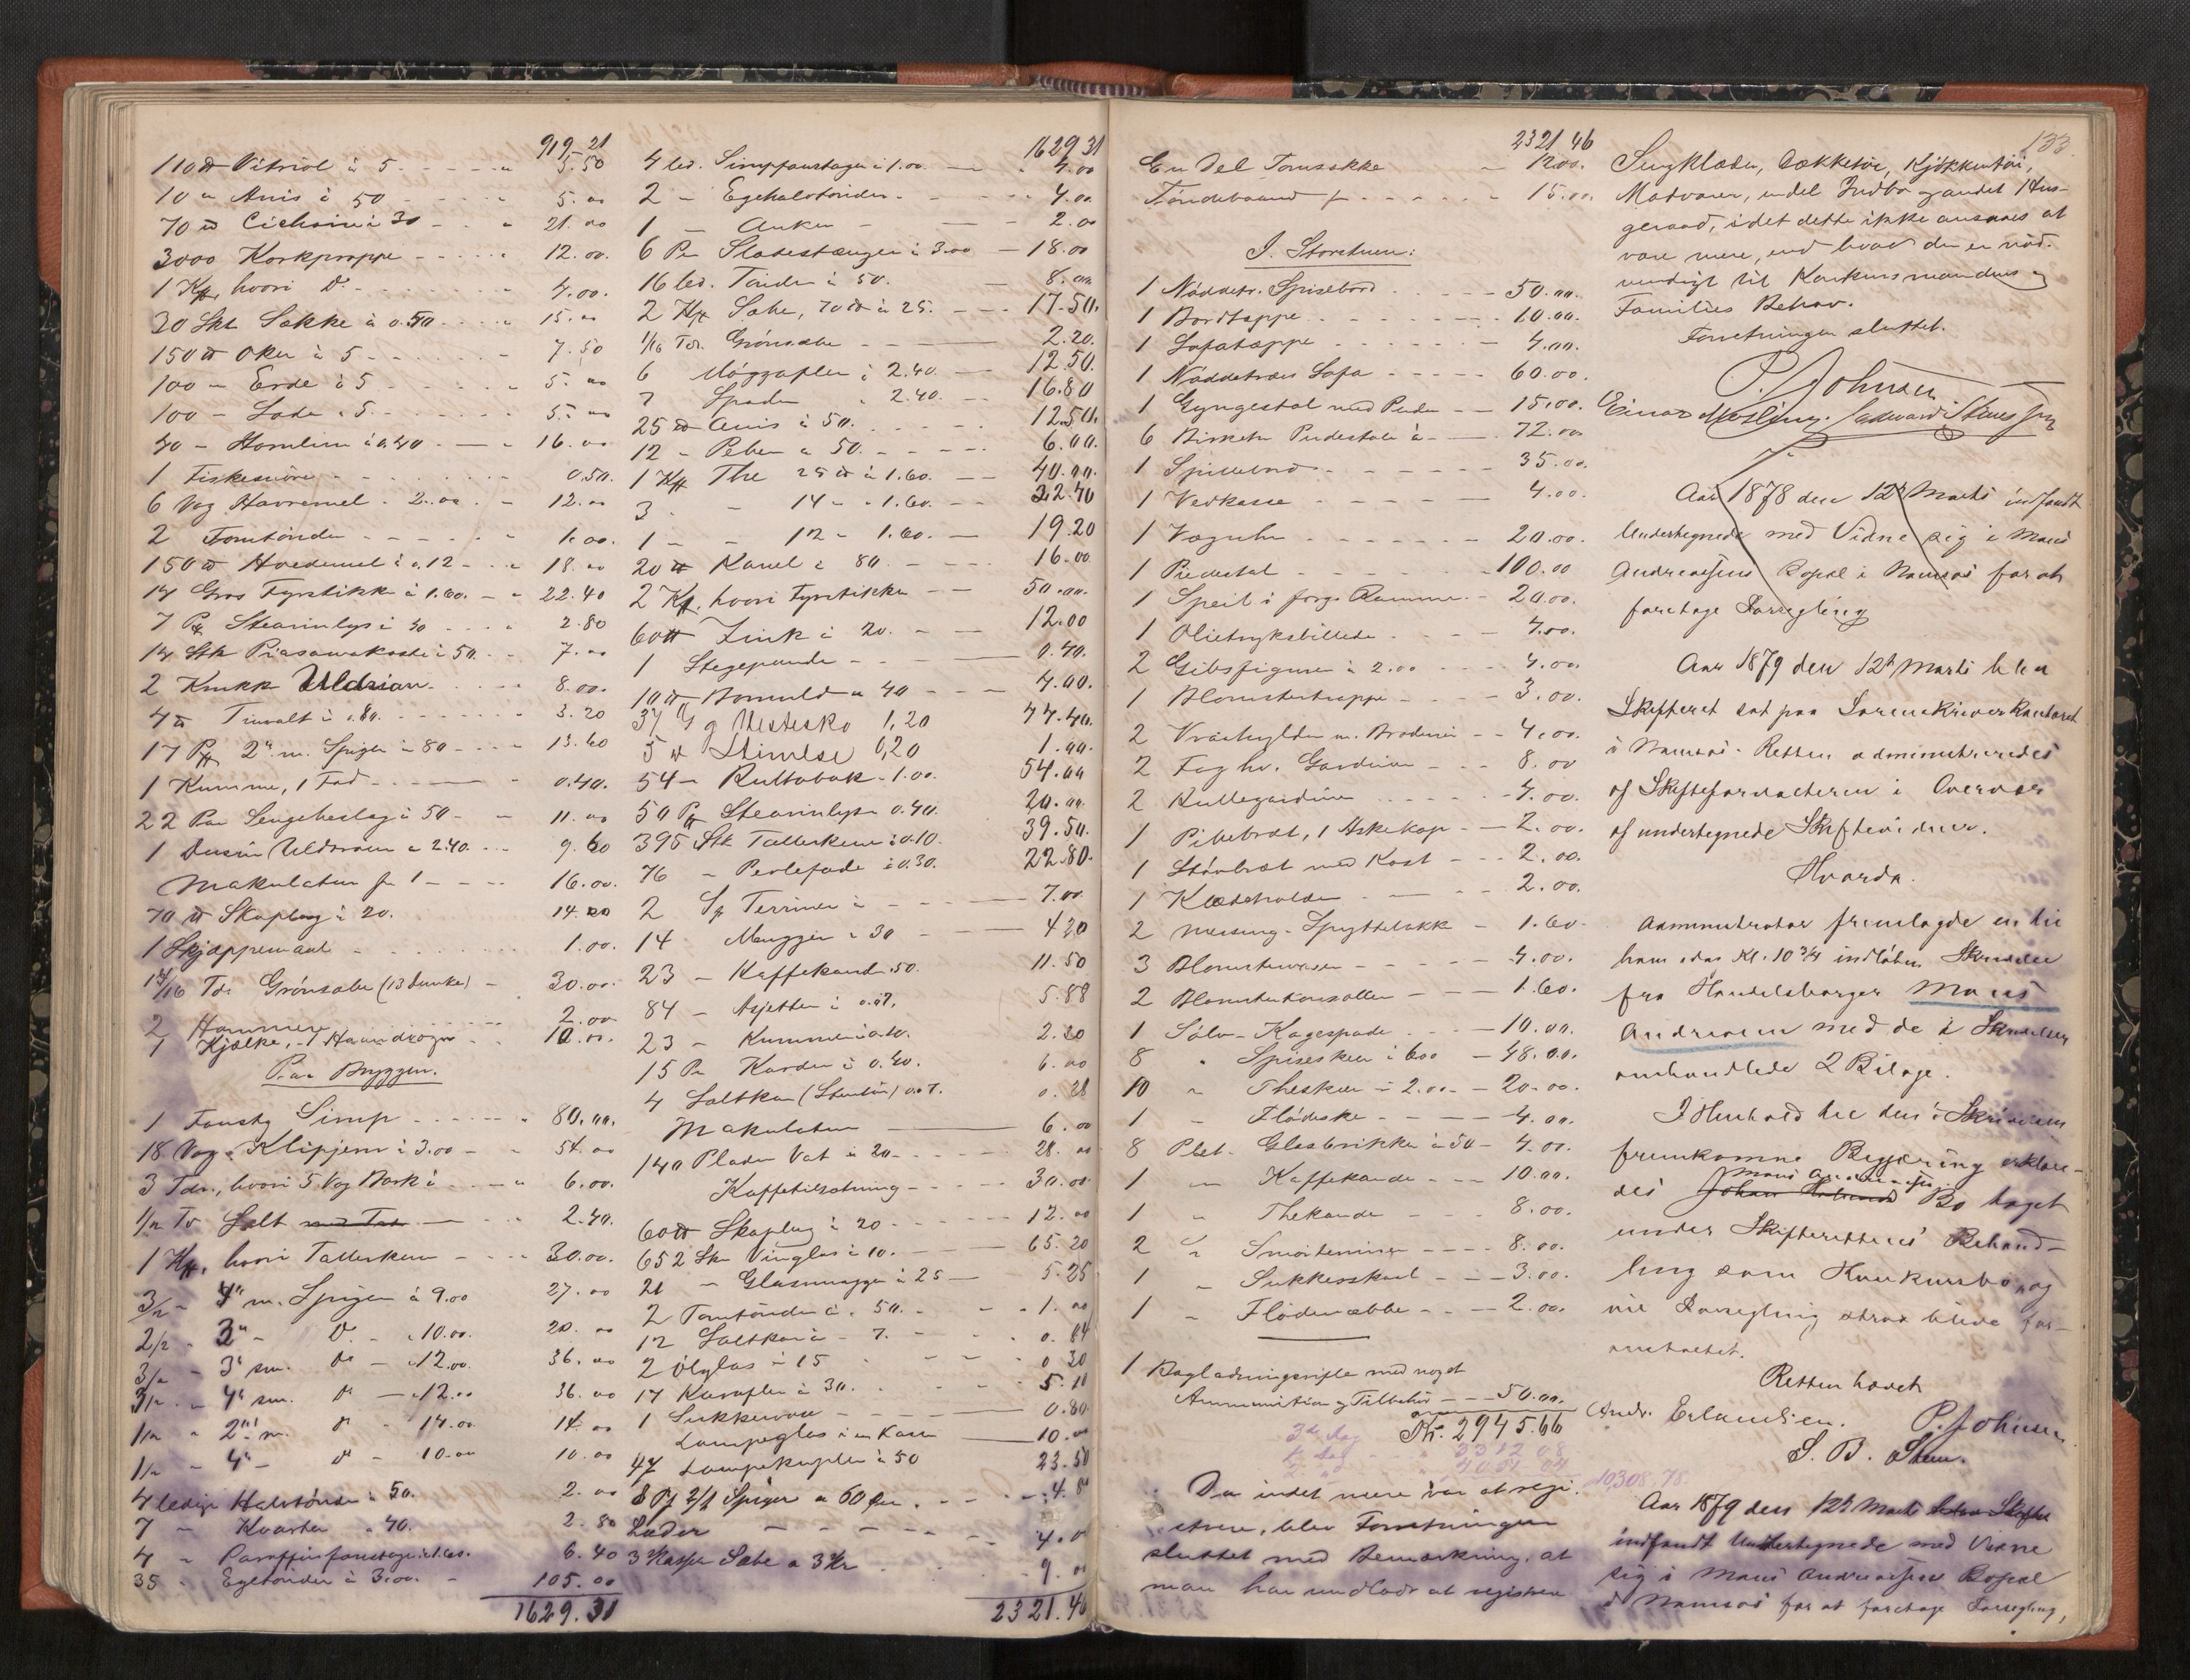 919-21
110 ℔ Vitriol à 5 - - - - " 5.50
10 " Anis à 50 - - - - 5.00
70 ℔ Cichorie à 30 - - " 21.00
3000 Korkproppe - - - - - 12.00.
1 Kss, hvori Do - - - - - 4.00.
30 Stk Sække à 0.50 - - - " 15.00
150 ℔ Oker à 5 - - - - - 7.50
100 " Erde à 5 - - - - - " 5.00
100 - Soda à 5 - - - - - " 5.00
40 - Homlen à 0.40 - — " 16.00
1 Fiskesnöre - - - - - - 0.50.
6 Vog Havremel - 2.00 - - 12.00
2 Tomtönder - - - - - " 1.00.
150 ℔ Hvedemel à 0.12 - - " 18.00
14 Gros Fyrstikker à 1.60. - " 22.40
7 Pk Stearinlys à 40 - - - " 2.80
14 Stk Piasavakoste à 50 - - 7.00
2 Krukk - - - 8.00.
4 ℔ à 0.80. - - - - - 3.20
17 Pk 2" m. Spiger à 80 - - - - 13.60
1 Kumme, 1 Fad - - — - " 0.40.
22 Par Sengebeslag à 50 - - " 11.00
1 Dusin à 2.40. - - - 9.60
Makulatur for 1 - - - - 16.00.
70 ℔ Skoplug à 20. 14.00
1 Skjæppemaal - - - - - - 1.00.
13/16 Td. Grönsæbe (13 Dunke) - 30.00.
2 Hammere - - - - - - 2.00
1 Kjælke, - 1 Haanddrogn - - 10.00.
Paa Bryggen.
1 Fustg Simp - - - - - " 80.00.
18 Vog Klipjern à 3.00 - - 54.00
3 Tdr, hvori 5 Vog Bark à - - - " 6.00.
1/2 Td Salt - — - - - 2.40.
1 Kss, hvori Tallerkener - - - " 30.00.
3/2 - 4" m. Spiger à 9.00 27.00
2/2 - 3" - Do - " 10.00. 20.00
3/2 - 3" sm. Do - " 12.00. 36.00
3/2 - 4" sm. Do - " 12.00 36.00
1/2 " 2" m. Do - 14.00 14.00
1/2 - 4" - Do - 10.00 10.00
4 ledige Halvtönder à 50. 2.00
7 - Kvarter à 40. 2.80
4 " Paraffinfustage à 1.60. 6.40
35 " Egetönder à 3.00. - 105.00
1629.31
1629 31
4 led. Simpfoustager à 1.00. — " 4.00
2 - Egehalvtönder. - - - - 4.00.
1 - Anker - - — 2.00
6 Par Slædestænger à 3.00 - 18.00
16 led. Tönder à 50. — 8.00
2 Kss Sæbe, 70 ℔ à 25. - - - 17.50.
1/16 Td. Grönsæbe - - —— 2.20.
6 Møggafler à 2.40. — 12.50.
7 Spader à 2.40. - - 16.80
25 ℔ Anis à 50. - - - - - 12.50.
12 - Peber à 50. - - - - - 6.00.
1 Kss The 25 ℔ à 1.60. — - 40.00.
3 - - 14 - - 1.60. — - 22.40
1 - - 12 - 1.60. — 19.20
20 ℔ Kanel à 80. - - — 16.00
2 Kss, hvori Fyrstikker - - 50.00.
60 ℔ Zink à 20. - - — 12.00
1 Stegepande - - —— 0.40.
10 ℔ Bomuld à 40 - - — 4.00.
37 P g Hestesko 1,20 44.40.
5 ℔ Stimlse 0,20 1.00.
54 - Rultobak - 1.00. 54.00
50 Pk Stearinlys 0.40. 20.00
395 Stk Tallerkener à 0.10. 39.50.
76 - Perlefade à 0.30. 22.80.
2 St Terriner à - - —— 7.00
14 Mugger à 30 - —— 4 20
23 - Kaffekander 50. 11.50
84 - Asjetter à 0.07. 5.88
23 - Kummer à 0.10. 2.30
15 Par Karder à 0.40. 6.00
4 Saltkar (Stentöi) 0.07. 0.28
Makulatur —— 6.00
140 Plader Vat à 20 - - - - 28.00
Kaffetilsætning - - - - - 30.00
60 ℔ Skoplug à 20 - - - - - 12.00
652 Stk Vinglas à 10. - — 65.20
21 - Glasmugger à 25 — 5.25
2 Tomtönder à 50. - - - 1.00
12 Saltkar à - 7. - - - 0.84
2 Ølglas à 15 - - - 0 30
17 Karafler à 30. - - - 5.10
1 Sukkervase - - —— 0.80
Lampeglas i en Kasse —— 10.00
47 Lampekupler à 50 23.50
8 Pk 2/2 Spiger à 60 Øre. - - - 4.80
Læder - - - - - 4.00
3 Kasser Sæbe a 3 Kr - - - 9.00
2321.46
2321 46
En Del Tomsække - 12.00.
Töndebaand for - - - - - 15.00.
I. Storstuen:
1 Nöddetr. Spisebord - - - - 50.00.
1 Bordtæppe. - - - - - - 10.00.
1 Sofatæppe - - - - - - 4.00.
1 Nøddetræes Sofa - - - - - 60.00.
1 Gyngestol med Puder - - 15.00.
6 Birketr Pudestole à - —— 72.00
1 Spillebord - - - - - - 35.00.
1 Vedkasse - - - - - 4.00.
1 Vægeuhr - - - - - - 20.00.
1 Piedestal - - - - - 100.00
1 Speil i forg. Ramme - - 20.00.
1 Olietryksbillede. - - - - 4.00.
2 Gibsfigurer à 2.00 - - - - 4.00.
1 Blomstertrappe - - - - 3.00.
2 Vraahylder m. Broderi - - 4.00.
2 Fag hv. Gardiner - - - 8.00
2 Rullegardiner - - - - - 4.00.
1 Pibebræt, 1 Askekop - — 2.00.
1 Störbræt med Kost - - - 2.00.
1 Klædeholder. - — - - 2.00.
2 Messing-Spyttebakk - 1.60.
3 Blomstervaser - - - - - 4.00.
2 Blomsterkonsoller - - — 1.60.
1 Sölv-Kagespade - - - — 10.00.
8 " Spiseskeer à 6.00 — 48.00.
10 " Theskeer à 2.00. - 20.00.
1 - Flödeske - - - — 4.00.
8 Plet- Glasbrikker à 50 - 4.00.
1 — Kaffekande - - - 10.00.
1 " Thekande - - - 8.00.
2 St Smörterriner - - - - 8.00.
1 " Sukkerskaal - - — 3.00.
1 " Flödenæbbe - - — 2.00.
1 Bagladningsrifle med noget
Ammunition og Tilbehör — 50.00.
Kr. 2945.66
3die dag
3312 08
4051 04
10,308.78.
Da intet mere var at regi-
strere, blev Forretningen
sluttet med Bemærkning, at
man har undladt at registrere
133.
Sengklæder, Dækketöi, Kjökkentöi,
Madvarer, endel Indbo og andet Hus-
geraad, idet dette ikke ansaaes at
være mere, end hvad der er nöd-
vendigt til Konkursmandens og
Families Behov.
Forretningen sluttet.
P. Johnsen
Einar Mosling. Edward Steens Jnr
Aar 1878 den 12te Marts indfandt
Undertegnede med Vidne sig i Maris
Andreasens Bopæl i Namsos for at
foretage Forsegling
Aar 1879 den 12te Marts blev
Skifteret sat paa Sorenskriverkontoret
i Namsos. Retten administreredes
af Skifteforvalteren i Overvær
af undertegnede Skiftevidner.
Hvorda:
Administrator fremlagde en til
ham idag Kl. 10 3/4 indlöben Skrivelse
fra Handelsborger Maris
Andreasen med de i Skrivelsen
omhandlede 2 Bilage.
I Henhold til den i Skrivelsen
fremkomne Begjæring erklære-
des Maris Andreasens Bo taget
under Skifterettens Behand-
ling som Konkursbo, og
vil Forsegling strax blive for-
anstaltet.
Retten hævet
P. Johnsen
Andr. Erlandsen.
S. B. Steen.
Aar 1879 den 12te Marts
indfandt Undertegnede med Vidne
sig i Maris Andreasens Bopæl
i Namsos for at foretage Forsegling,